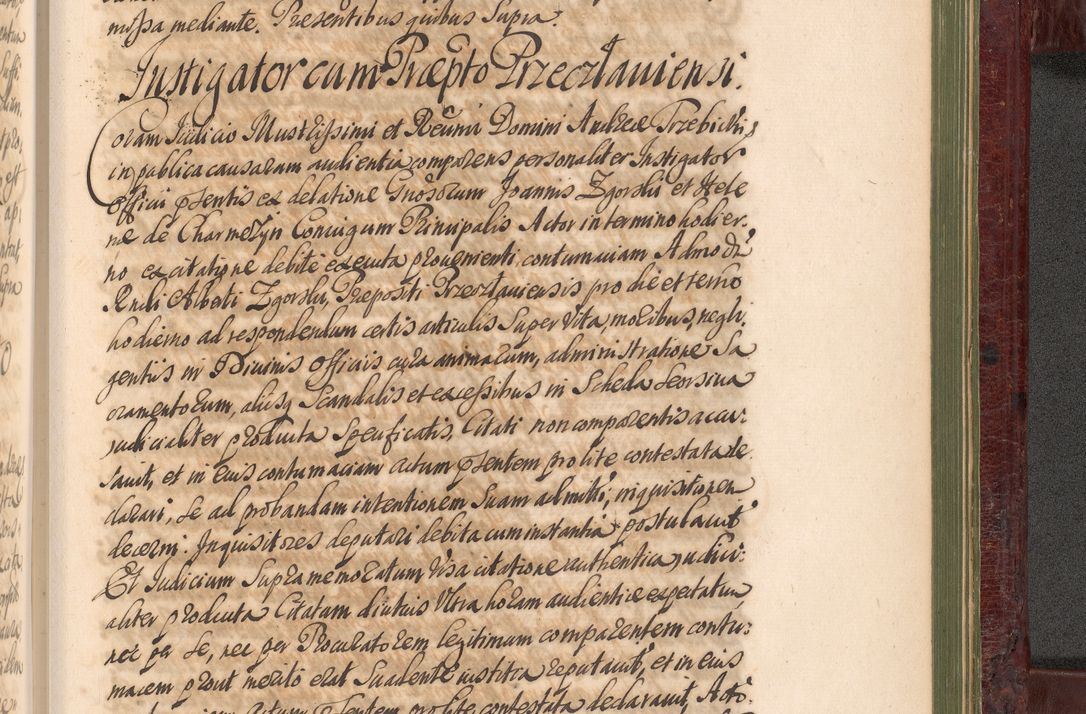 missa mediante. Presentibus quibus supra.
Instigator cum Præpto Przeczlaviensi.
Coram Judicio Illustrissimi et Reumi Domini Andreæ Trzebicki,
in publica causarum audientia comparens personaliter Instigator
Officii psentis ex delatione Gnosorum Joannis Zgorski et Hele
næ de Charmezyn Coniugum Principalis Actor in termino hodier:
no ex citatione debite executa provenienti, contumaciam Admodū
Rndi Alberti Zgorski, Præpositi Przeczlaviensis pro die et termo
hodierno ad respondendum certis articulis super vita, moribus, negli:
gentiis in Divinis officiis cura animarum, administratione Sa
cramentorum, aliisq scandalis et excessibus in Scheda seorsiva
judicialiter producta specificatis, Citati non comparentis accu:
savit, et in eius contumaciam actum psentem pro lite contestata de
clarari, se ad probandam intentionem suam admitti, inquisitionem
decerni. Inquisitores deputari debita cum instantia postulavit
Et Judicium supra memoratum visa citatione authentica judici:
aliter producta Citatum diutius ultra horam audientiæ expectatum
nec per se, nec per Procuratorem legitimum comparentem contu:
macem prout merito erat suadente iustitia reputavit, et in eius
contumaciam actum psentem pro lite contestata declaravit, Acto